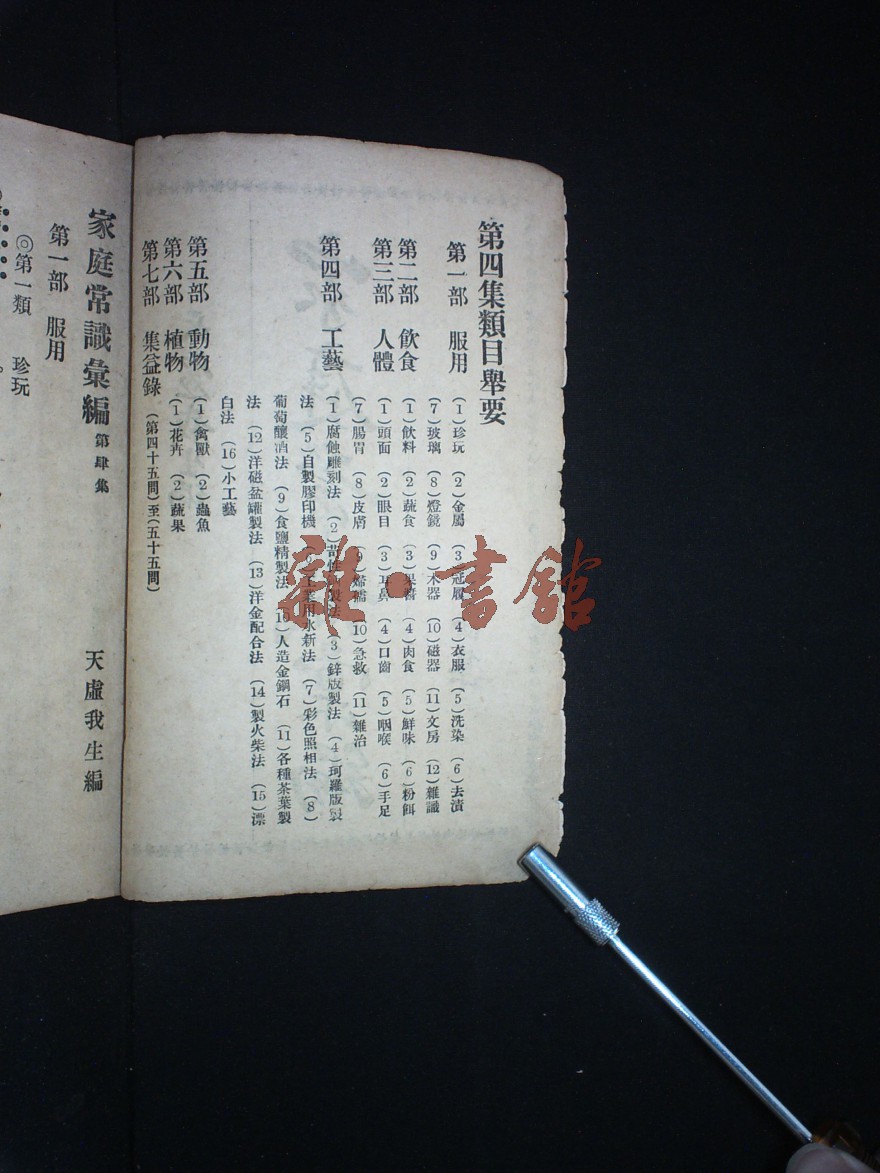 第四集類目舉要
第一部　服用　（1）珍玩　（2）金屬　（3）冠履　（4）衣服　（5）洗染　（6）去漬
（7）玻璃　（8）燈鏡　（9）木器　（10）磁器　（11）文房　（12）雜識
第二部　飲食　（1）飲料　（2）蔬食　（3）　（4）肉食　（5）鮮味　（6）粉餌
第三部　人體　（1）頭面　（2）眼目　（3）耳鼻　（4）口齒　（5）咽喉　（6）手足
（7）腸胃　（8）皮膚　（9）婦孺　（10）急救　（11）雜治
第四部　工藝　（1）腐蝕雕刻法　（2）製法　（3）鋅版製法　（4）珂羅版製
法　（5）自製膠印機　工業用水新法　（7）彩色照相法　（8）
葡萄釀酒法　（9）食鹽精製法　（10）人造金鋼石　（11）各種茶葉製
法　（12）洋磁盆罐製法　（13）洋金配合法　（14）製火柴法　（15）漂
白法　（16）小工藝
第五部　動物　（1）禽獸　（2）蟲魚
第六部　植物　（1）花卉　（2）蔬果
第七部　集益錄　（第四十五問）至（五十五問）
家庭常識彙編　第肆集　天虛我生編
第一部　服用
◎第一類　珍玩
雜·書館